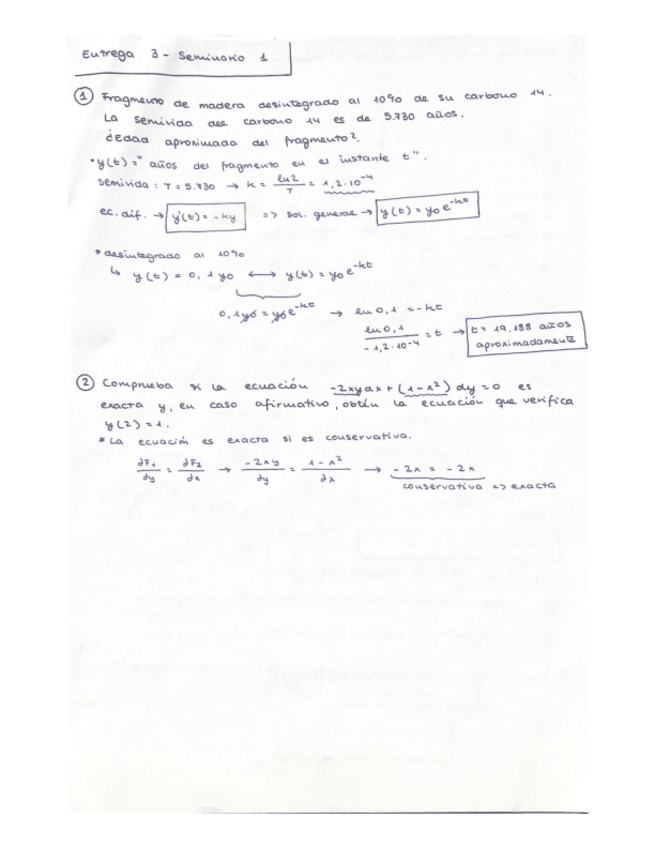 Entrega 3 - Seminario 1
① Fragmento de madera desintegrado al 10% de su carbono 14.
La semivida del carbono 14 es de 5.730 años.
¿Edad aproximada del fragmento?.
• y(t) = " años del fragmento en el instante t".
semivida : T = 5.730 → k = ln2/T = 1,2·10⁻⁴
ec. dif. → y'(t) = -ky => sol. general → y(t) = y₀e^-kt
* desintegrado al 10%
↳ y(t) = 0,1y₀ ⟷ y(t) = y₀e^-kt
0,1y₀ = y₀e^-kt → ln 0,1 = -kt
ln 0,1 / -1,2·10⁻⁴ = t → t = 19.188 años
aproximadamente
② Comprueba si la ecuación -2xydx + (1-x²) dy = 0 es
exacta y, en caso afirmativo, obtén la ecuación que verifica
y(2) = 1.
* La ecuación es exacta si es conservativa.
∂F₁/∂y = ∂F₂/∂x → -2xy/∂y = 1-x²/∂x → -2x = -2x
conservativa => exacta